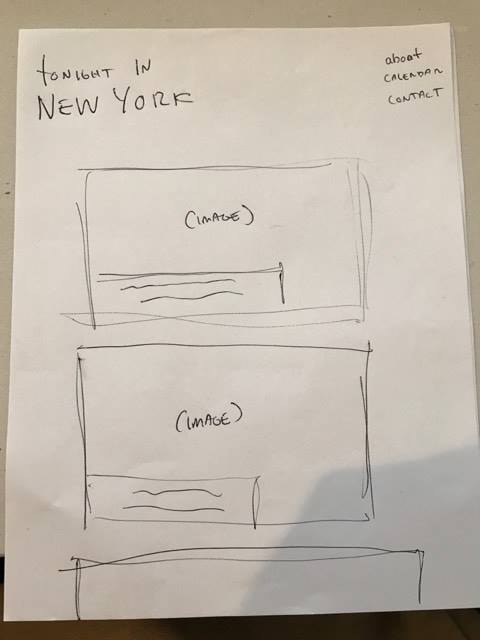 tONIGHT IN
NEW YORK
about
CALENDAR
CONTACT
(IMAGE)
(IMAGE)